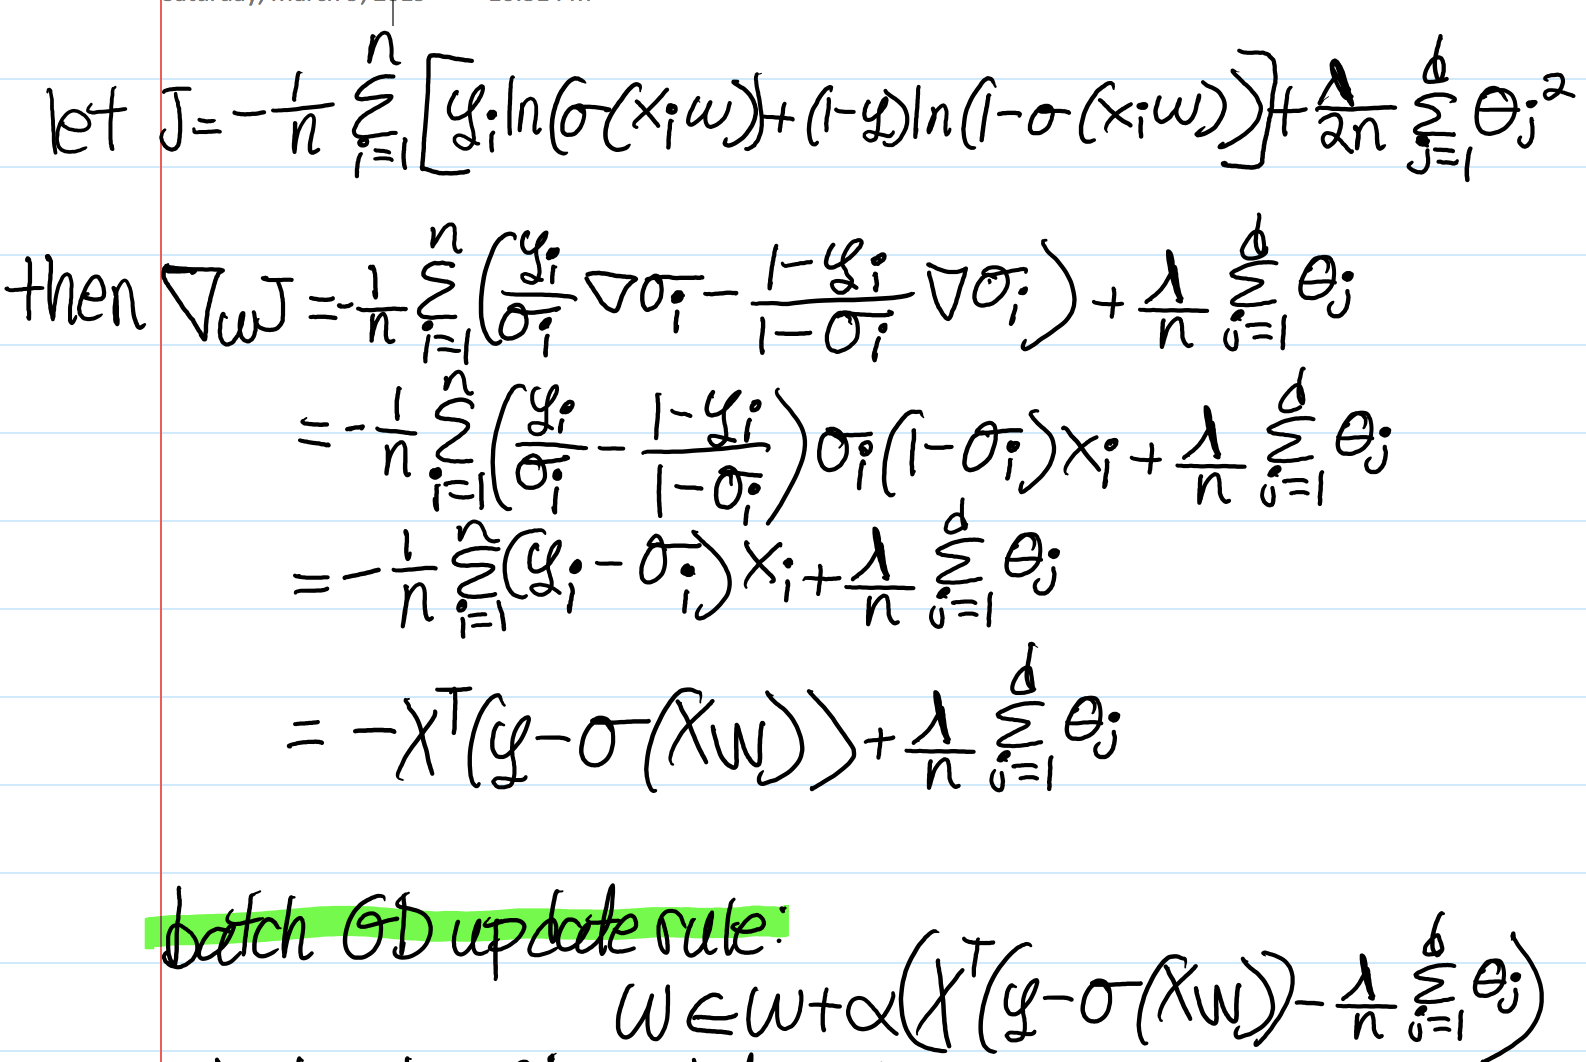 let J = -1/n Σ_{i=1}^{n} [y_i ln(σ(x_i w)) + (1-y) ln(1-σ(x_i w))] + λ/2n Σ_{j=1}^{d} θ_j^2
then ∇_w J = -1/n Σ_{i=1}^{n} (y_i/σ_i ∇σ_i - (1-y_i)/(1-σ_i) ∇σ_i) + λ/n Σ_{j=1}^{d} θ_j
= -1/n Σ_{i=1}^{n} (y_i/σ_i - (1-y_i)/(1-σ_i)) σ_i(1-σ_i) x_i + λ/n Σ_{j=1}^{d} θ_j
= -1/n Σ_{i=1}^{n} (y_i - σ_i) x_i + λ/n Σ_{j=1}^{d} θ_j
= -X^T(y-σ(Xw)) + λ/n Σ_{j=1}^{d} θ_j
batch GD update rule:
w ∈ w + α(X^T(y-σ(Xw)) - λ/n Σ_{j=1}^{d} θ_j)